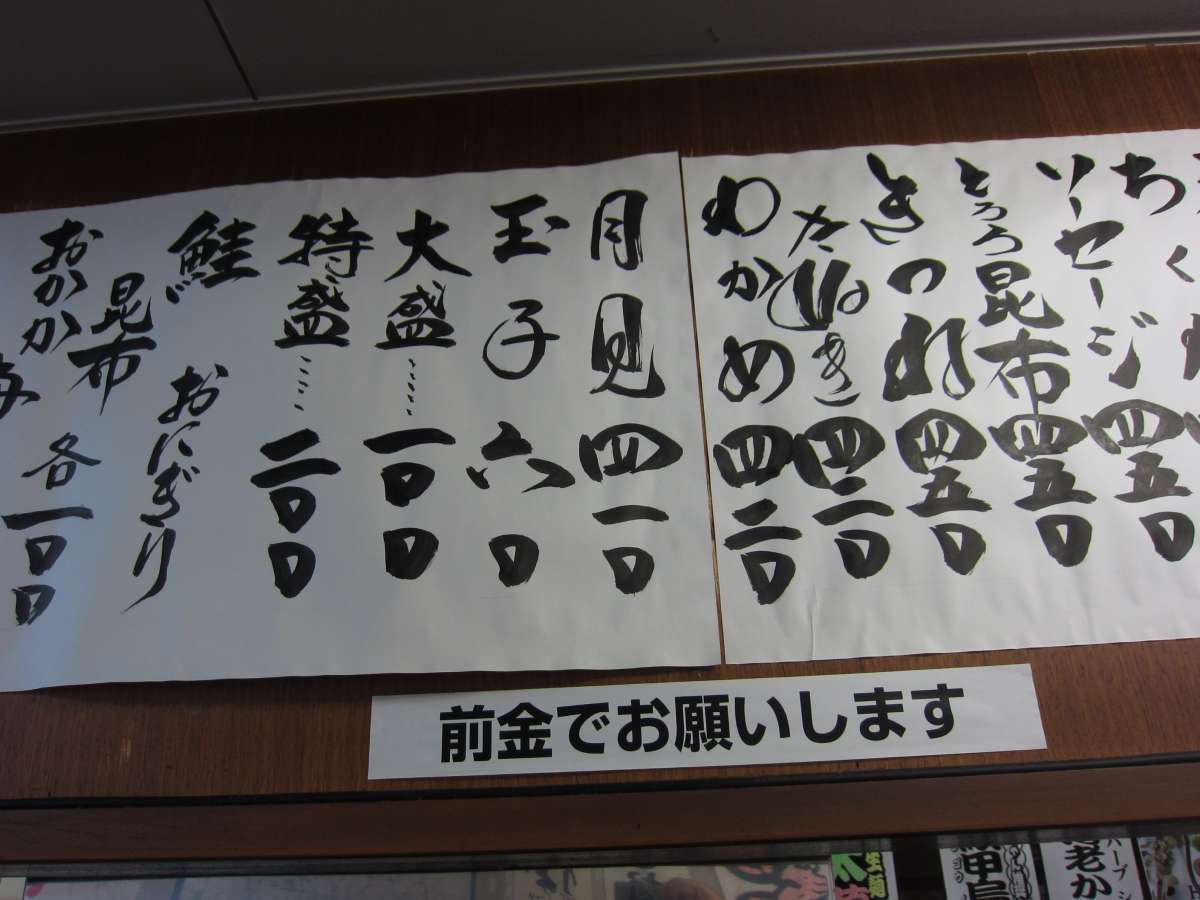 ソーセージ四五〇
とろろ昆布四五〇
きつね四五〇
たぬき四二〇
わかめ四二〇
月見四一〇
玉子六〇
大盛……一〇〇
特盛……二〇〇
おにぎり
鮭
昆布
おかか
各一〇〇
前金でお願いします